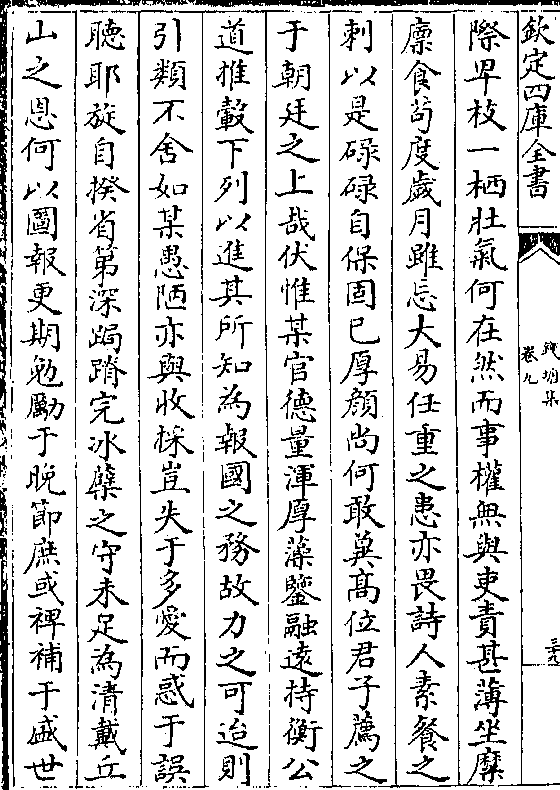 欽定四庫全書
錢塘集
卷九
際卑枝一栖壯氣何在然而事權無與吏責甚薄坐糜
廩食苟度歲月雖忘大易任重之患亦畏詩人素餐之
刺以是碌碌自保固已厚顔尚何敢冀高位君子薦之
于朝廷之上哉伏惟某官德量渾厚藻鑒融遠持衡公
道推轂下列以進其所知為報國之務故力之可迨則
引類不舍如某愚陋亦與收採豈失于多愛而惑于誤
聽耶旋自揆省第深跼蹐完冰蘗之守未足為清戴丘
山之恩何以圖報更期勉勵于晚節庶或裨補于盛世